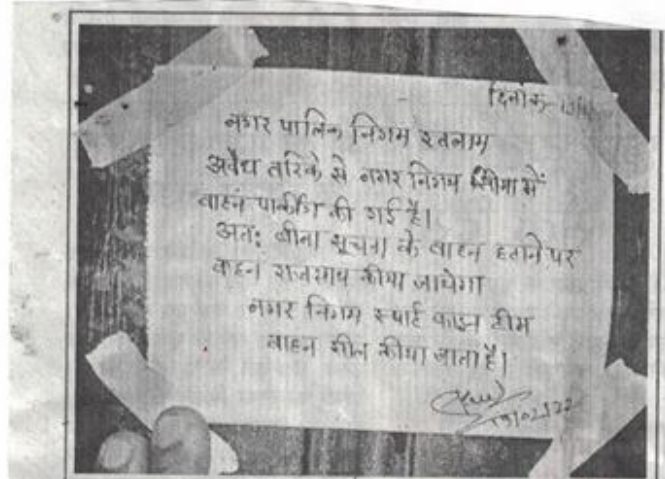 दिनांक-
नगर पालिक निगम रतलाम
अवैध तरिके से नगर निगम सीमा में
वाहन पार्कींग की गई है।
अतः बीना सूचना के वाहन हटाने पर
वाहन राजसाय कीया जायेगा
नगर निगम स्पाई फाइन टीम
वाहन सील कीया जाता है।